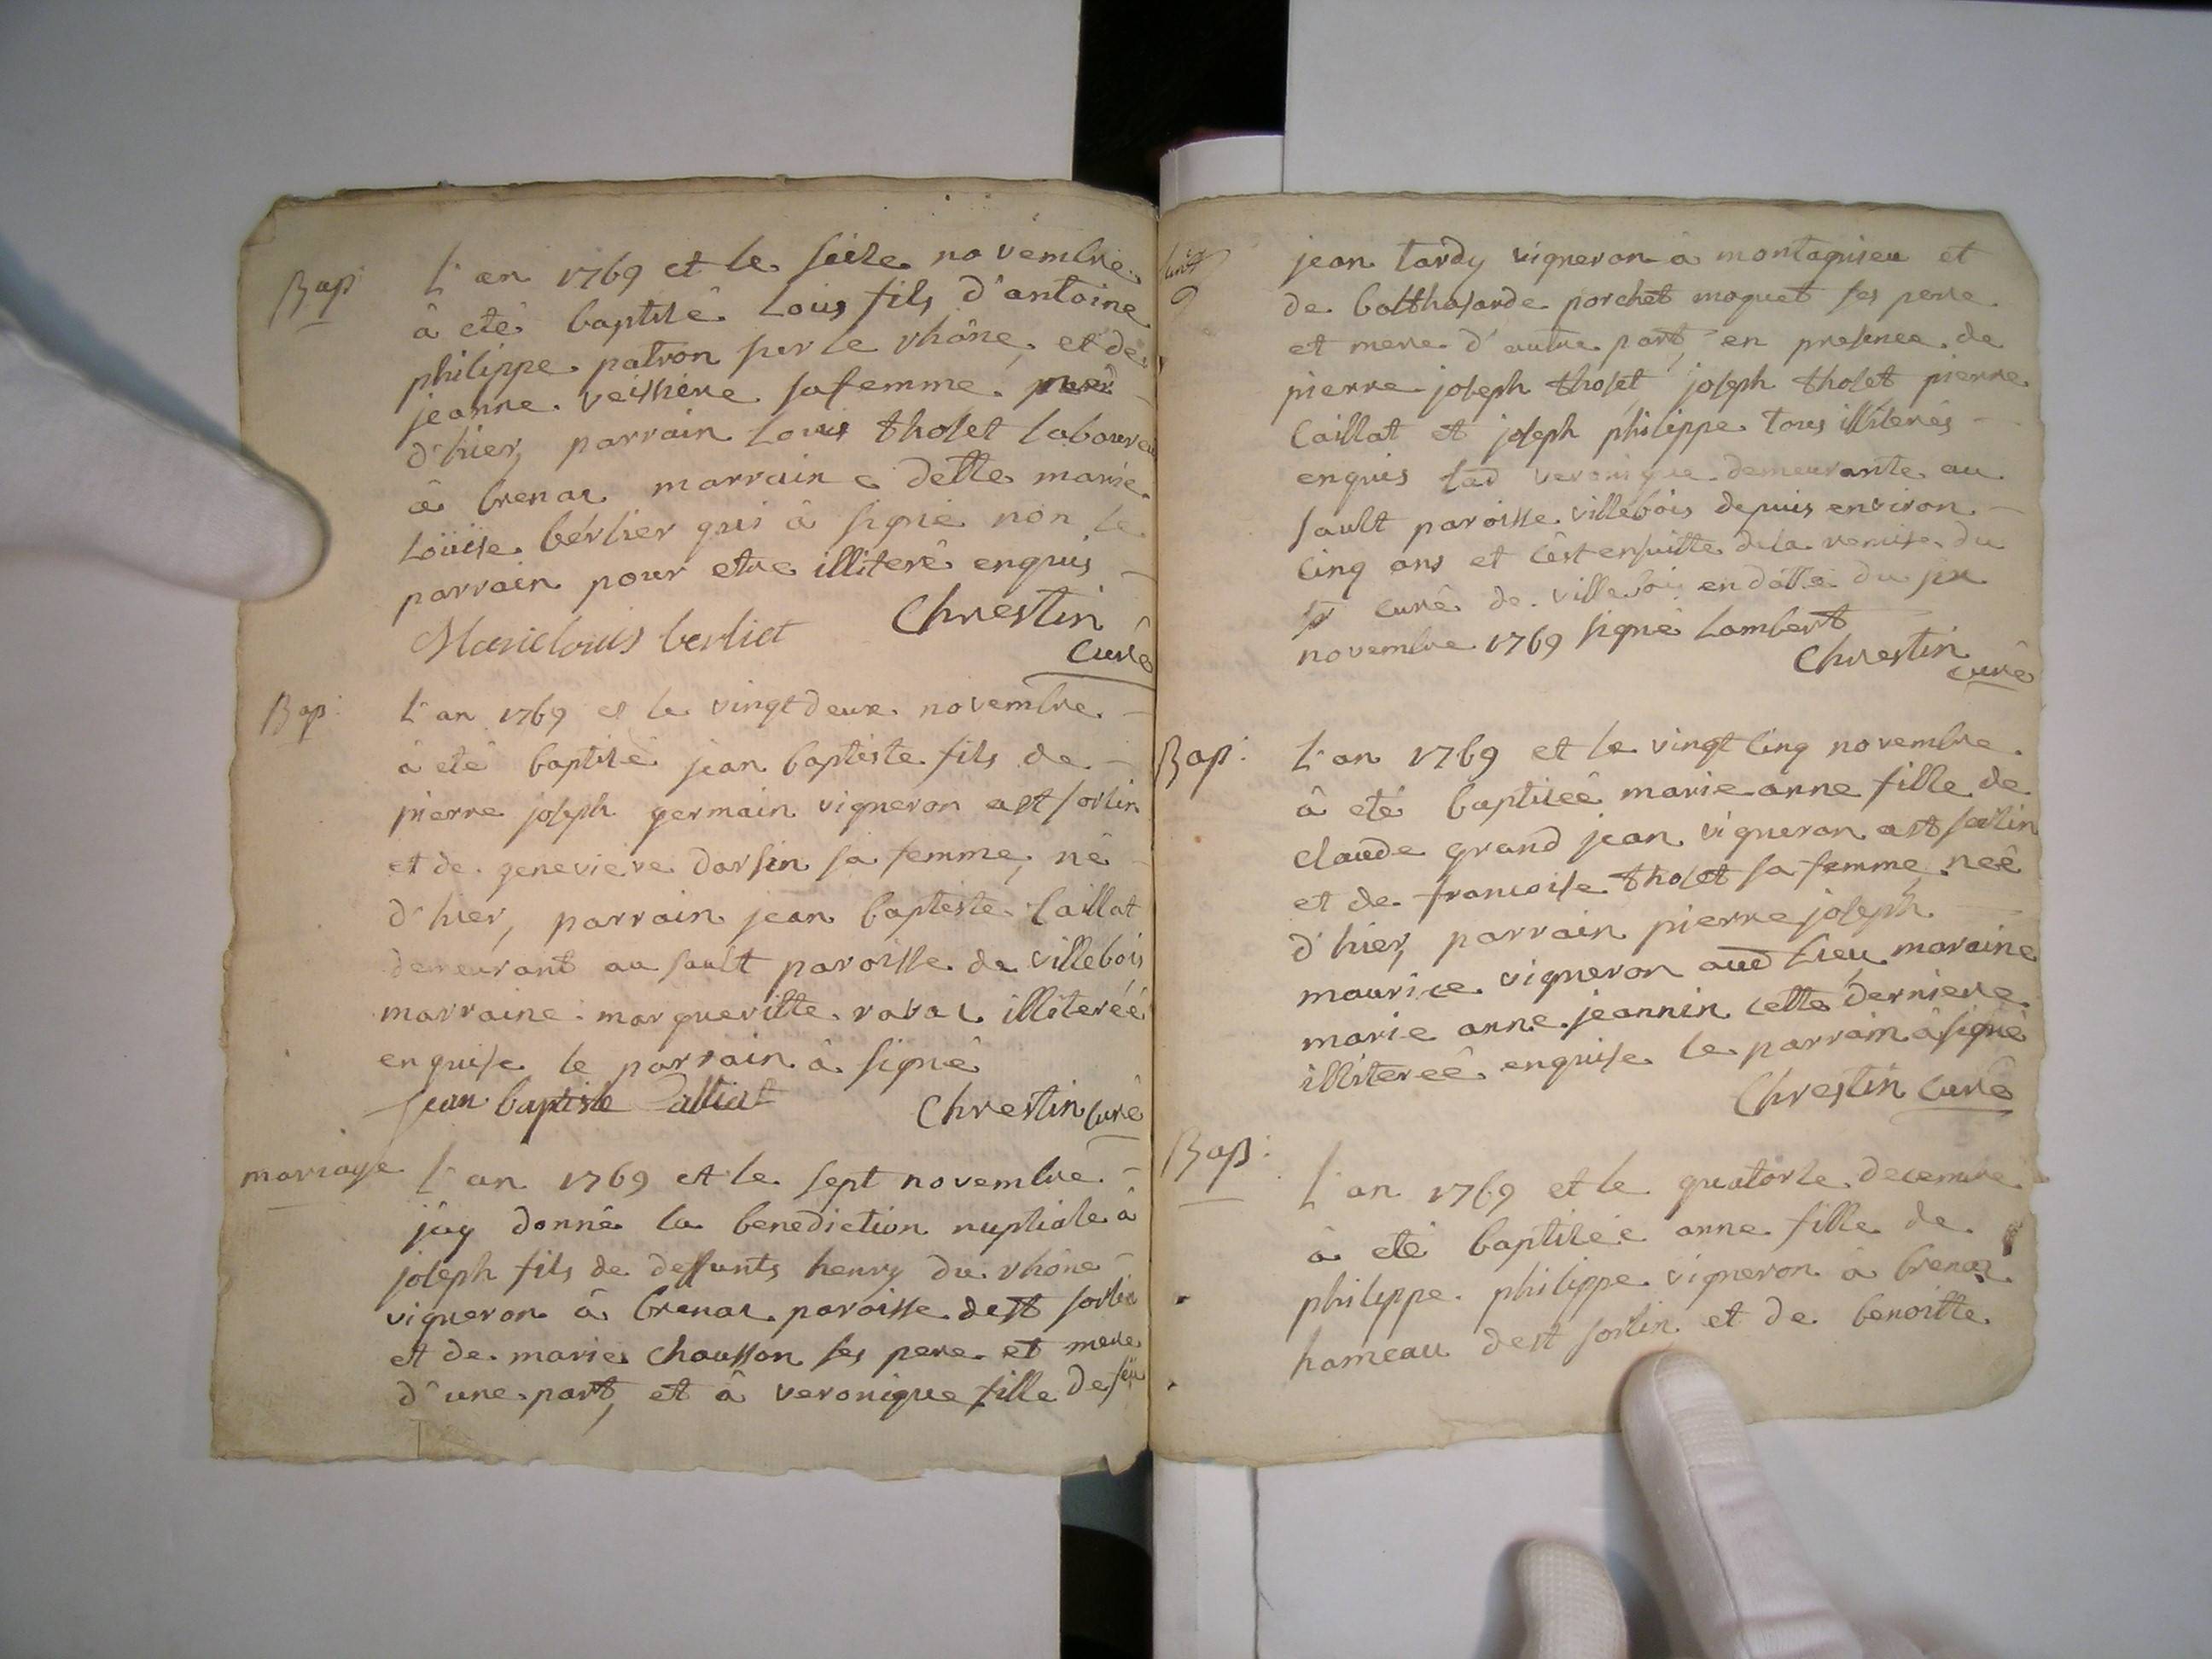 Bap
L'an 1769 et le seize novembre
à eté baptisé Louis fils d'antoine
philippe patron sur le rhône, et de
jeanne veissiere sa femme,
d'hier, parrain Louis tholet laboureu
à brenaz marraine delle marie
Loüise berlier qui à signé non le
parrain pour etre illiteré enquis
Marielouis berliet Chrestin
Curé
Bap:
L'an 1769 et le vingt deux novembre
à eté baptisé jean baptiste fils de
pierre joseph germain vigneron a st sorlin
et de genevieve darsin sa femme, né
d'hier, parrain jean baptiste Caillat
demeurant au sault paroisse de villebois
marraine margueritte ravaz illiterée
enquise le parrain à signé
jean baptiste Calliat Chrestin curé
mariage
L'an 1769 et le sept novembre
j'ay donné la benediction nuptiale à
joseph fils de deffunts henry du rhône
vigneron à brenaz paroisse de st sorlin
et de marie chausson ses pere et mere
d'une part, et à veronique fille de feu
jean tardy vigneron à montagnieu et
de balthasarde porchet moquet ses pere
et mere d'autre part, en presence de
pierre joseph tholet joseph tholet pierre
Caillat et joseph philippe tous illiterés
enquis lad veronique demeurante au
sault paroisse villebois depuis environ
cinq ans et c'est ensuitte de la remise du
sr curé de villebois en datte du six
novembre 1769 signé Lambert
Chrestin curé
Bap:
L'an 1769 et le vingt cinq novembre
à eté baptisée marie anne fille de
claude grand jean vigneron a st sorlin
et de francoise tholet sa femme, née
d'hier, parrain pierre joseph
maurice vigneron aud lieu maraine
marie anne jeannin cette derniere
illiterée enquise le parrain à signé
Chrestin curé
Bap:
L'an 1769 et le quatorze decembre
à eté baptisée anne fille de
philippe philippe vigneron à brenaz
hameau de st sorlin, et de benoitte